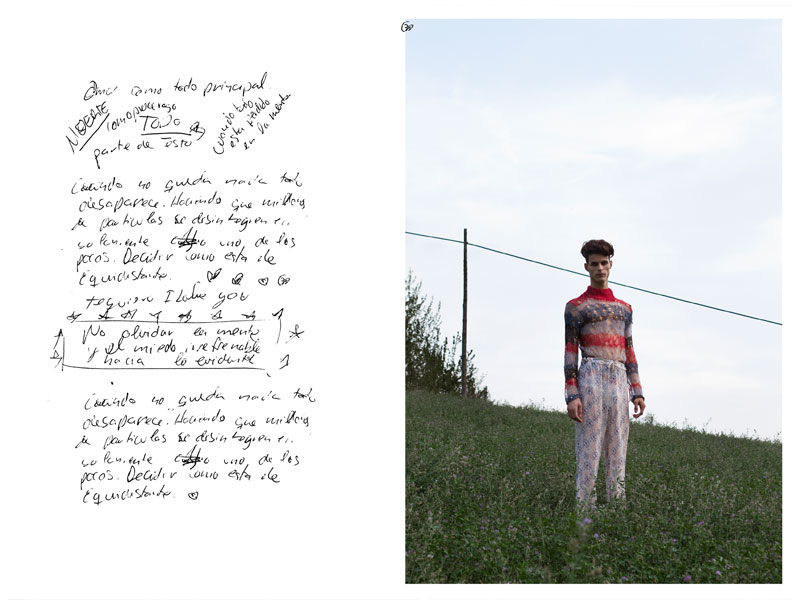 como todo principal
como
TODO
parte de esto
cuando todo
esta
en la mente
Cuando no queda nada todo
desaparece. Haciendo que millones
de particulas se desintegren en
uno de los
poros. Decidir como esta de
equidistante.
I love you
No olvidar la mente
y el miedo irrefrenable
hacia lo evidente
Cuando no queda nada todo
desaparece. Haciendo que millones
de particulas se desintegren en
uno de los
poros. Decidir como esta de
equidistante.